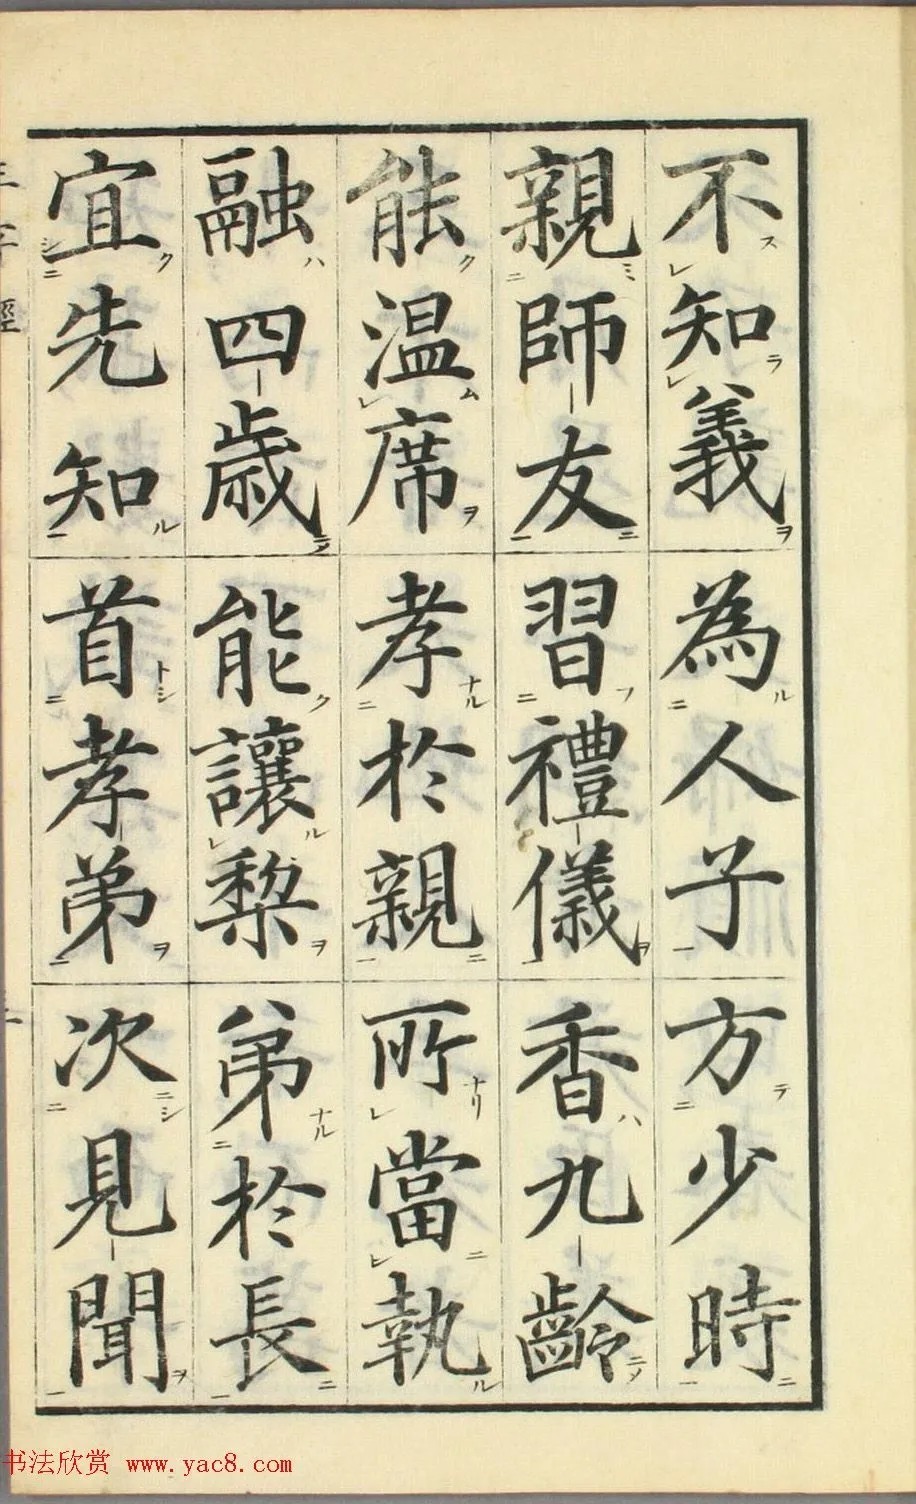 不知義為人子方少時
親師友習禮儀香九齡
能溫席孝於親所當執
融四歲能讓梨弟於長
宜先知首孝弟次見聞
三字經
书法欣赏 www.yac8.com